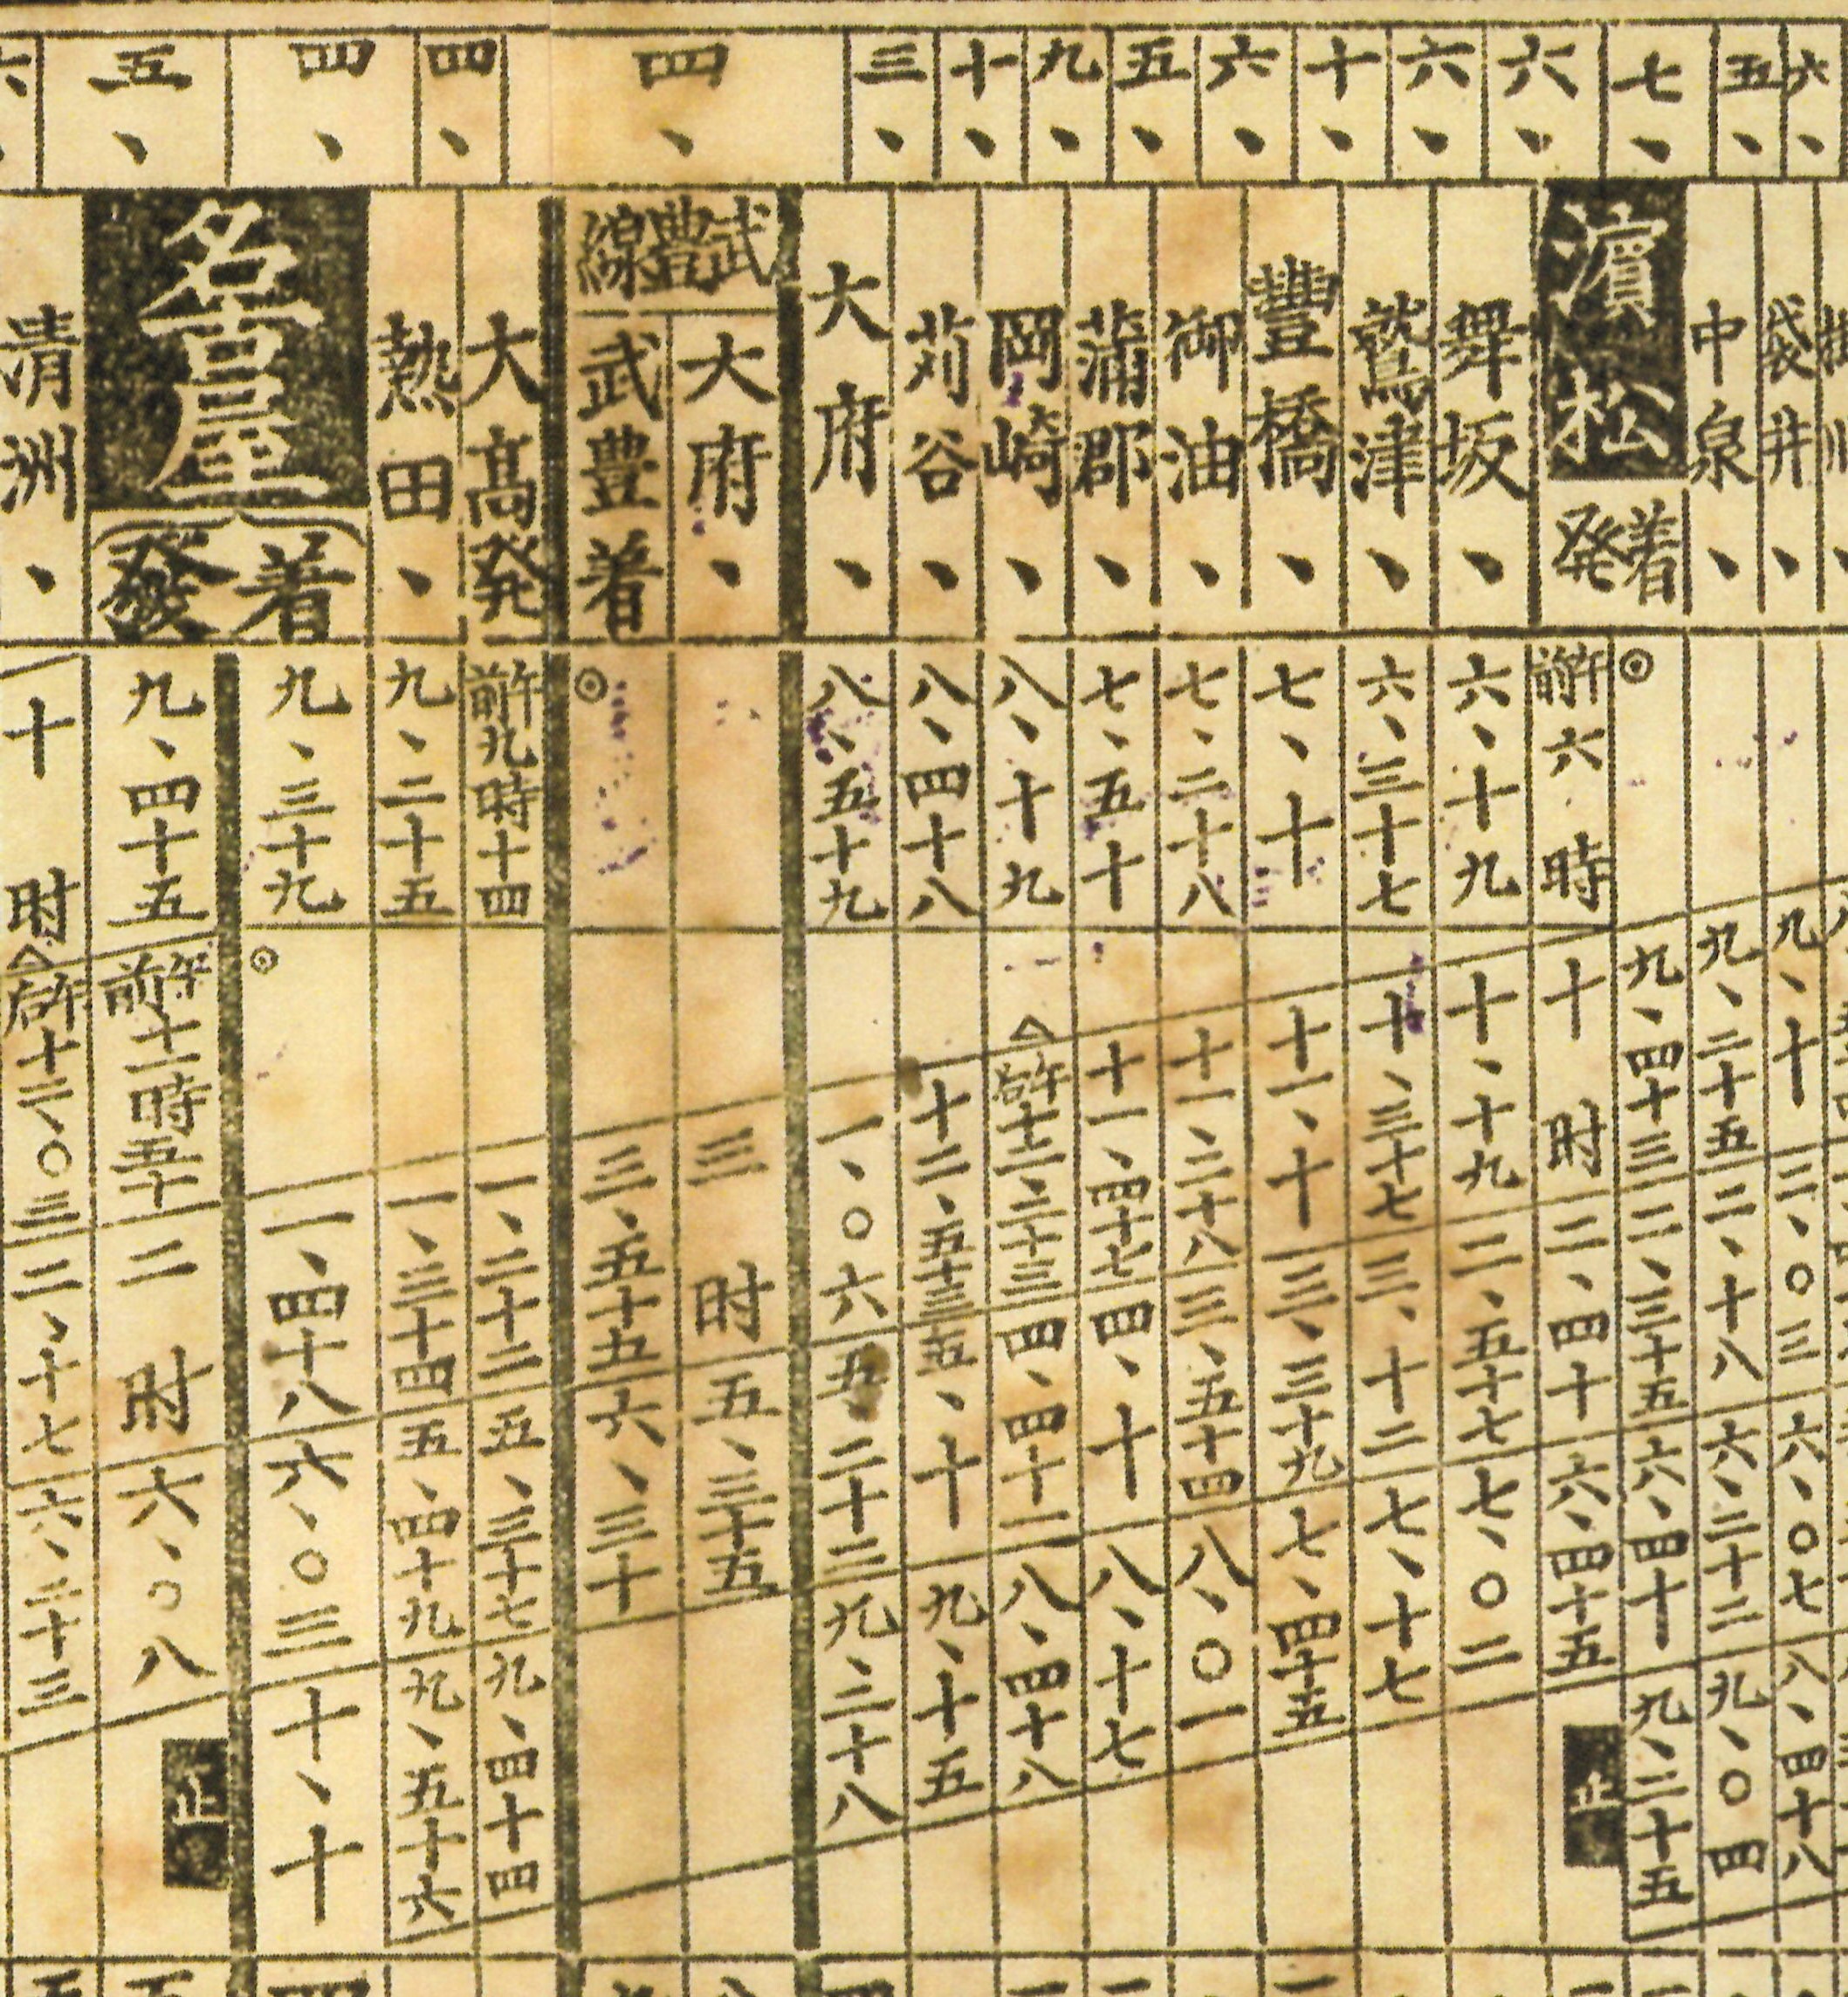 六、
五、
七、
六、
六、
十、
六、
五、
九、
十、
三、
四、
四、
四、
五、
袋井、
九、十
二、〇三
六、〇七
八、四十八
中泉、
九、二十五
二、十八
六、二十二
九、〇四
濱松
着
九、四十三
二、三十五
六、四十
九、二十五
発
午前六時
十時
二、四十
六、四十五
止
舞坂、
六、十九
十、十九
二、五十七
七、〇二
鷲津、
六、三十七
十、三十七
三、十二
七、十七
豐橋、
七、十
十一、十
三、三十九
七、四十五
御油、
七、二十八
十一、二十八
三、五十四
八、〇一
蒲郡、
七、五十
十一、四十七
四、十
八、十七
岡崎、
八、十九
午后十二、二十三
四、四十二
八、四十八
苅谷、
八、四十八
十二、五十三
五、十
九、十五
大府、
八、五十九
一、〇六
五、二十三
九、二十八
武豊線
大府、
三時
五、三十五
武豊着
三、五十五
六、三十
大髙発
午前九時十四
一、二十二
五、三十七
九、四十四
熱田、
九、二十五
一、三十四
五、四十九
九、五十六
名古屋
着
九、三十九
一、四十八
六、〇三
十、十
發
九、四十五
午前十一時五十
二時
六、〇八
止
清洲、
十時
午后十二、〇三
二、十七
六、二十三